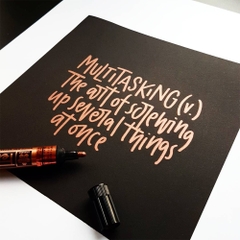 MULTITASKING (v.)
The art of screwing
up several things
at once